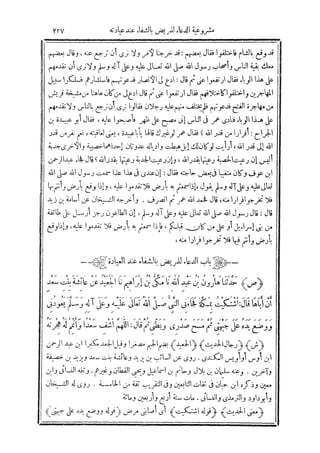 مشروعية الدعاء للمريض بالشفاء عند عيادته ٢٢٧
قد وقع بالشام فاختلفوا فقال بعضهم: قد خرجنا لأمر ولا نرى أن ترجع عنه، وقال بعضهم
معك بقية الناس وأصحاب رسول الله صلى الله تعالى عليه وعلى آله وسلم ولا نرى أن تقدمهم
على هذا الوباء، فقال ارتفعوا عني ثم قال: ادع لي الأنصار فدعوتهم فاستشارهم فسلكوا سبيل
المهاجرين واختلفوا كاختلافهم فقال ارتفعوا عني ثم قال ادع لي من كان هاهنا من مشيخة قريش
من مهاجرة الفتح فدعوتهم فلم يختلف منهم عليه رجلان فقالوا نرى أن ترجع بالناس ولا تقدمهم
على هذا الوباء، فنادى عمر في الناس إني مصبح على ظهر فأصبحوا عليه، فقال أبو عبيدة بن
الجراح: أفرارا من قدر الله؟ فقال عمر لو غيرك قالها يا أبا عبيدة، نعم نفر من قدر
الله إلى قدر الله، أرأيت لو كان لك إبل هبطت واديا له عدوتان إحداهما خصبة والأخرى جدبة
أليس إن رعيت الخصبة رعيتها بقدر الله، وإن رعيت الجدبة رعيتها بقدر الله؟ قال فجاء عبد الرحمن
ابن عوف وكان متغيبا في بعض حاجته فقال: إن عندي في هذا علما سمعت رسول الله صلى الله
تعالى عليه وعلى آله وسلم يقول: إذا سمعتم به بأرض فلا تقدموا عليه، وإذا وقع بأرض وأنتم بها
فلا تخرجوا فرارا منه، قال فحمد الله عمر ثم انصرف. وأخرجه الشيخان عن أسامة بن زيد
قال: قال رسول الله صلى الله تعالى عليه وعلى آله وسلم: إن الطاعون رجز أرسل على طائفة
من بني إسرائيل أو على من كان قبلكم، فإذا سمعتم به بأرض فلا تقدموا عليه، وإذا وقع
بأرض وأنتم فيها فلا تخرجوا فرارا منه.
باب الدعاء للمريض بالشفاء عند العيادة
(ص) حَدَّثَنَا هَارُونُ بْنُ عَبْدِ اللَّهِ نَا مَكِّيُّ بْنُ إِبْرَاهِيمَ نَا الْجُعَيْدُ عَنْ عَائِشَةَ بِنْتِ سَعْدٍ
أَنَّ أَبَاهَا قَالَ: اشْتَكَيْتُ بِمَكَّةَ فَجَاءَنِي النَّبِيُّ صَلَّى اللَّهُ تَعَالَى عَلَيْهِ وَعَلَى آلِهِ وَسَلَّمَ يَعُودُنِي
وَوَضَعَ يَدَهُ عَلَى جَبْهَتِي ثُمَّ مَسَحَ صَدْرِي وَبَطْنِي ثُمَّ قَالَ: اللَّهُمَّ اشْفِ سَعْدًا وَأَتْمِمْ لَهُ هِجْرَتَهُ
(ش) (رجال الحديث) (الجعيد) بضم الجيم مصغرا وقيل الجعد مكبرا ابن عبد الرحمن
ابن أوس أو أويس الكندي. روى عن السائب بن يزيد وعائشة بنت سعد ويزيد بن خصيفة
وآخرين. وعنه سليمان بن بلال وحاتم بن إسماعيل ويحيى القطان وغيرهم. وثقه النسائي وابن
معين وذكره ابن حبان في ثقات التابعين وفي التقريب ثقة من الخامسة. روى له الشيخان
وأبو داود والترمذي والنسائي. مات سنة أربع وأربعين ومائة
(معنى الحديث) (قوله اشتكيت) أي أصابني مرض (قوله ووضع يده على جبهتي)